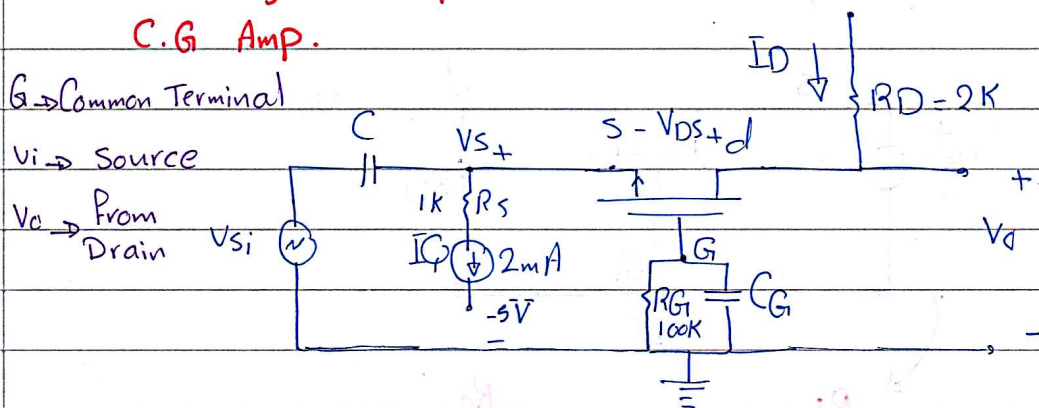 C.G Amp.
G → Common Terminal
Vi → Source
Vo → From Drain
Vsi
C
VS +
1K RS
IQ 2mA
-5V
-
S - VDS + d
G
RG 100K
CG
ID ↓
RD = 2K
+
Vo
-